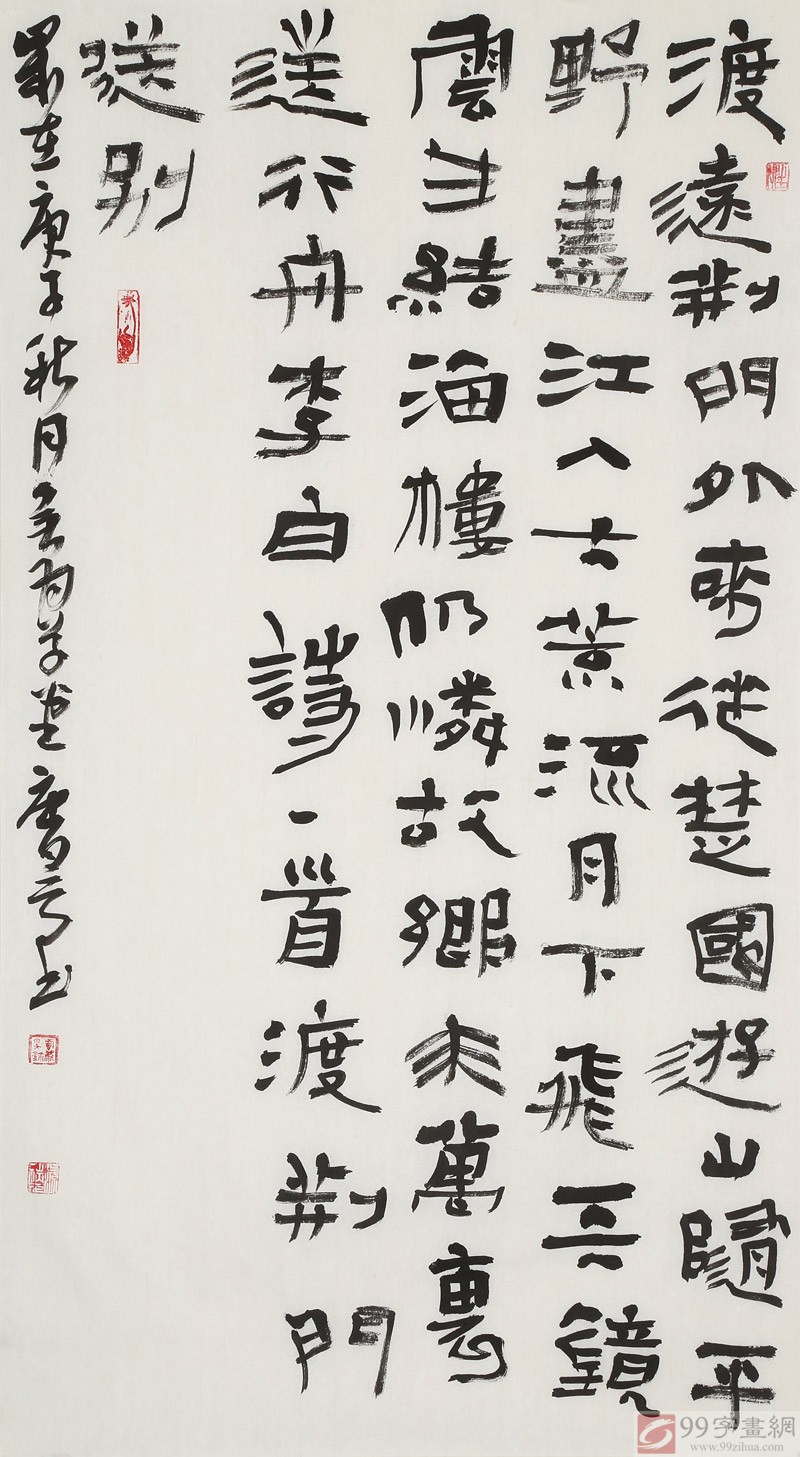 渡遠荊門外來從楚國遊山隨平
野盡江入大荒流月下飛天鏡
雲生結海樓仍憐故鄉水萬裏
送行舟李白詩一首渡荊門
送別
歲在庚子秋月草堂書
99字畫網
www.99zihua.com